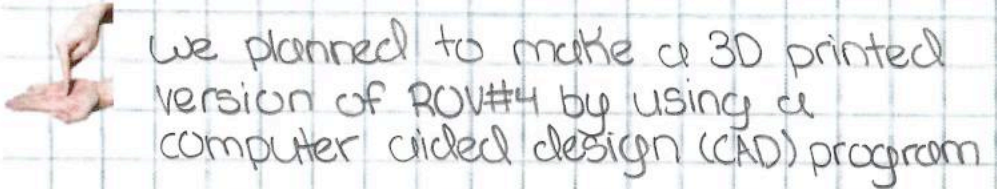 We planned to make a 3D printed
version of ROV#4 by using a
computer aided design (CAD) program